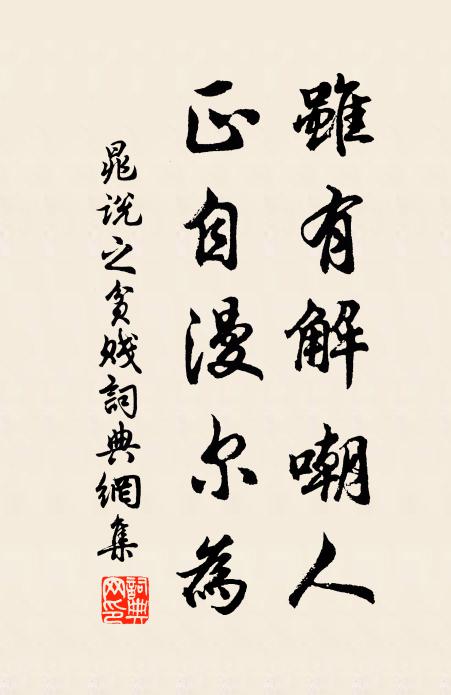 雖有解嘲人
正自漫尔為
晁說之貧賤詞典網集
詞典網印